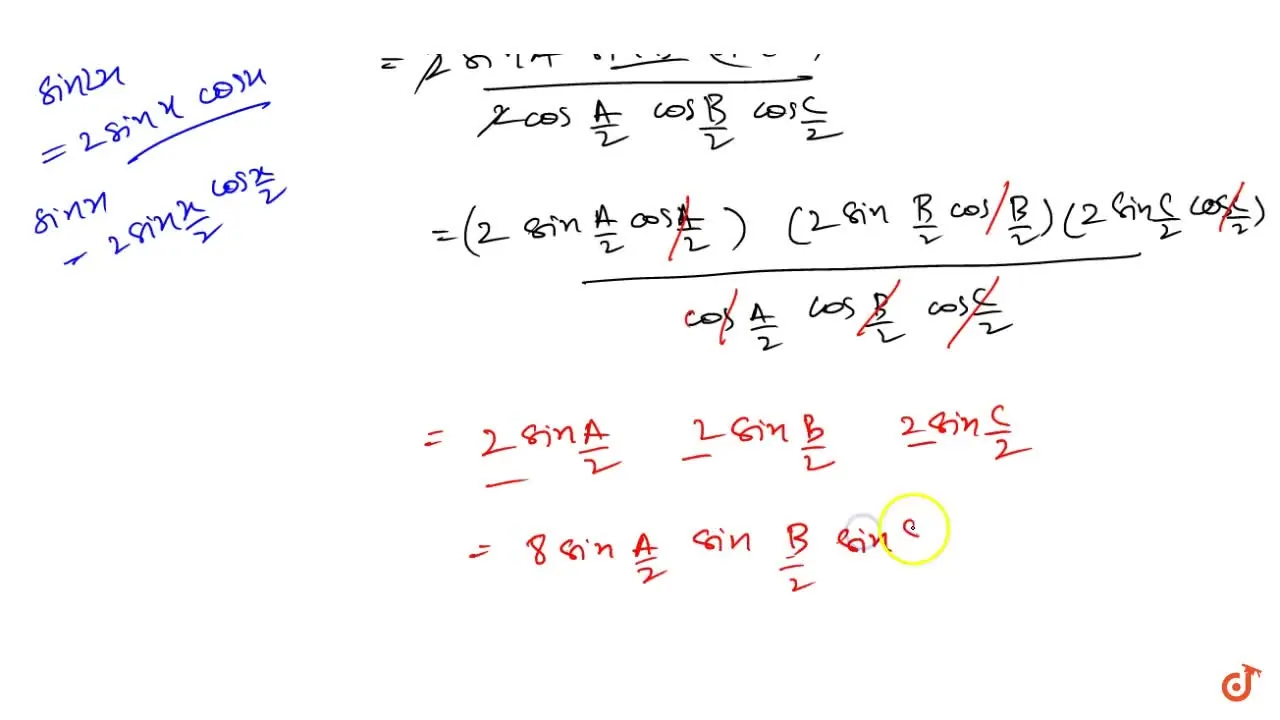 sin2x
= 2 sinx cosx
sinx
= 2 sin x/2 cos x/2
=
2cos A/2 cos B/2 cos C/2
= (2 sin A/2 cos A/2) (2 sin B/2 cos B/2) (2 sin C/2 cos C/2)
cos A/2 cos B/2 cos C/2
= 2 sin A/2 2 sin B/2 2 sin C/2
= 8 sin A/2 sin B/2 sin